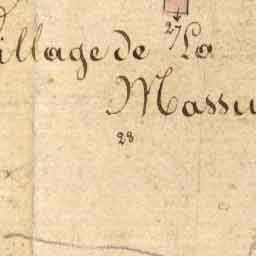 27
illage de La
Massu
28